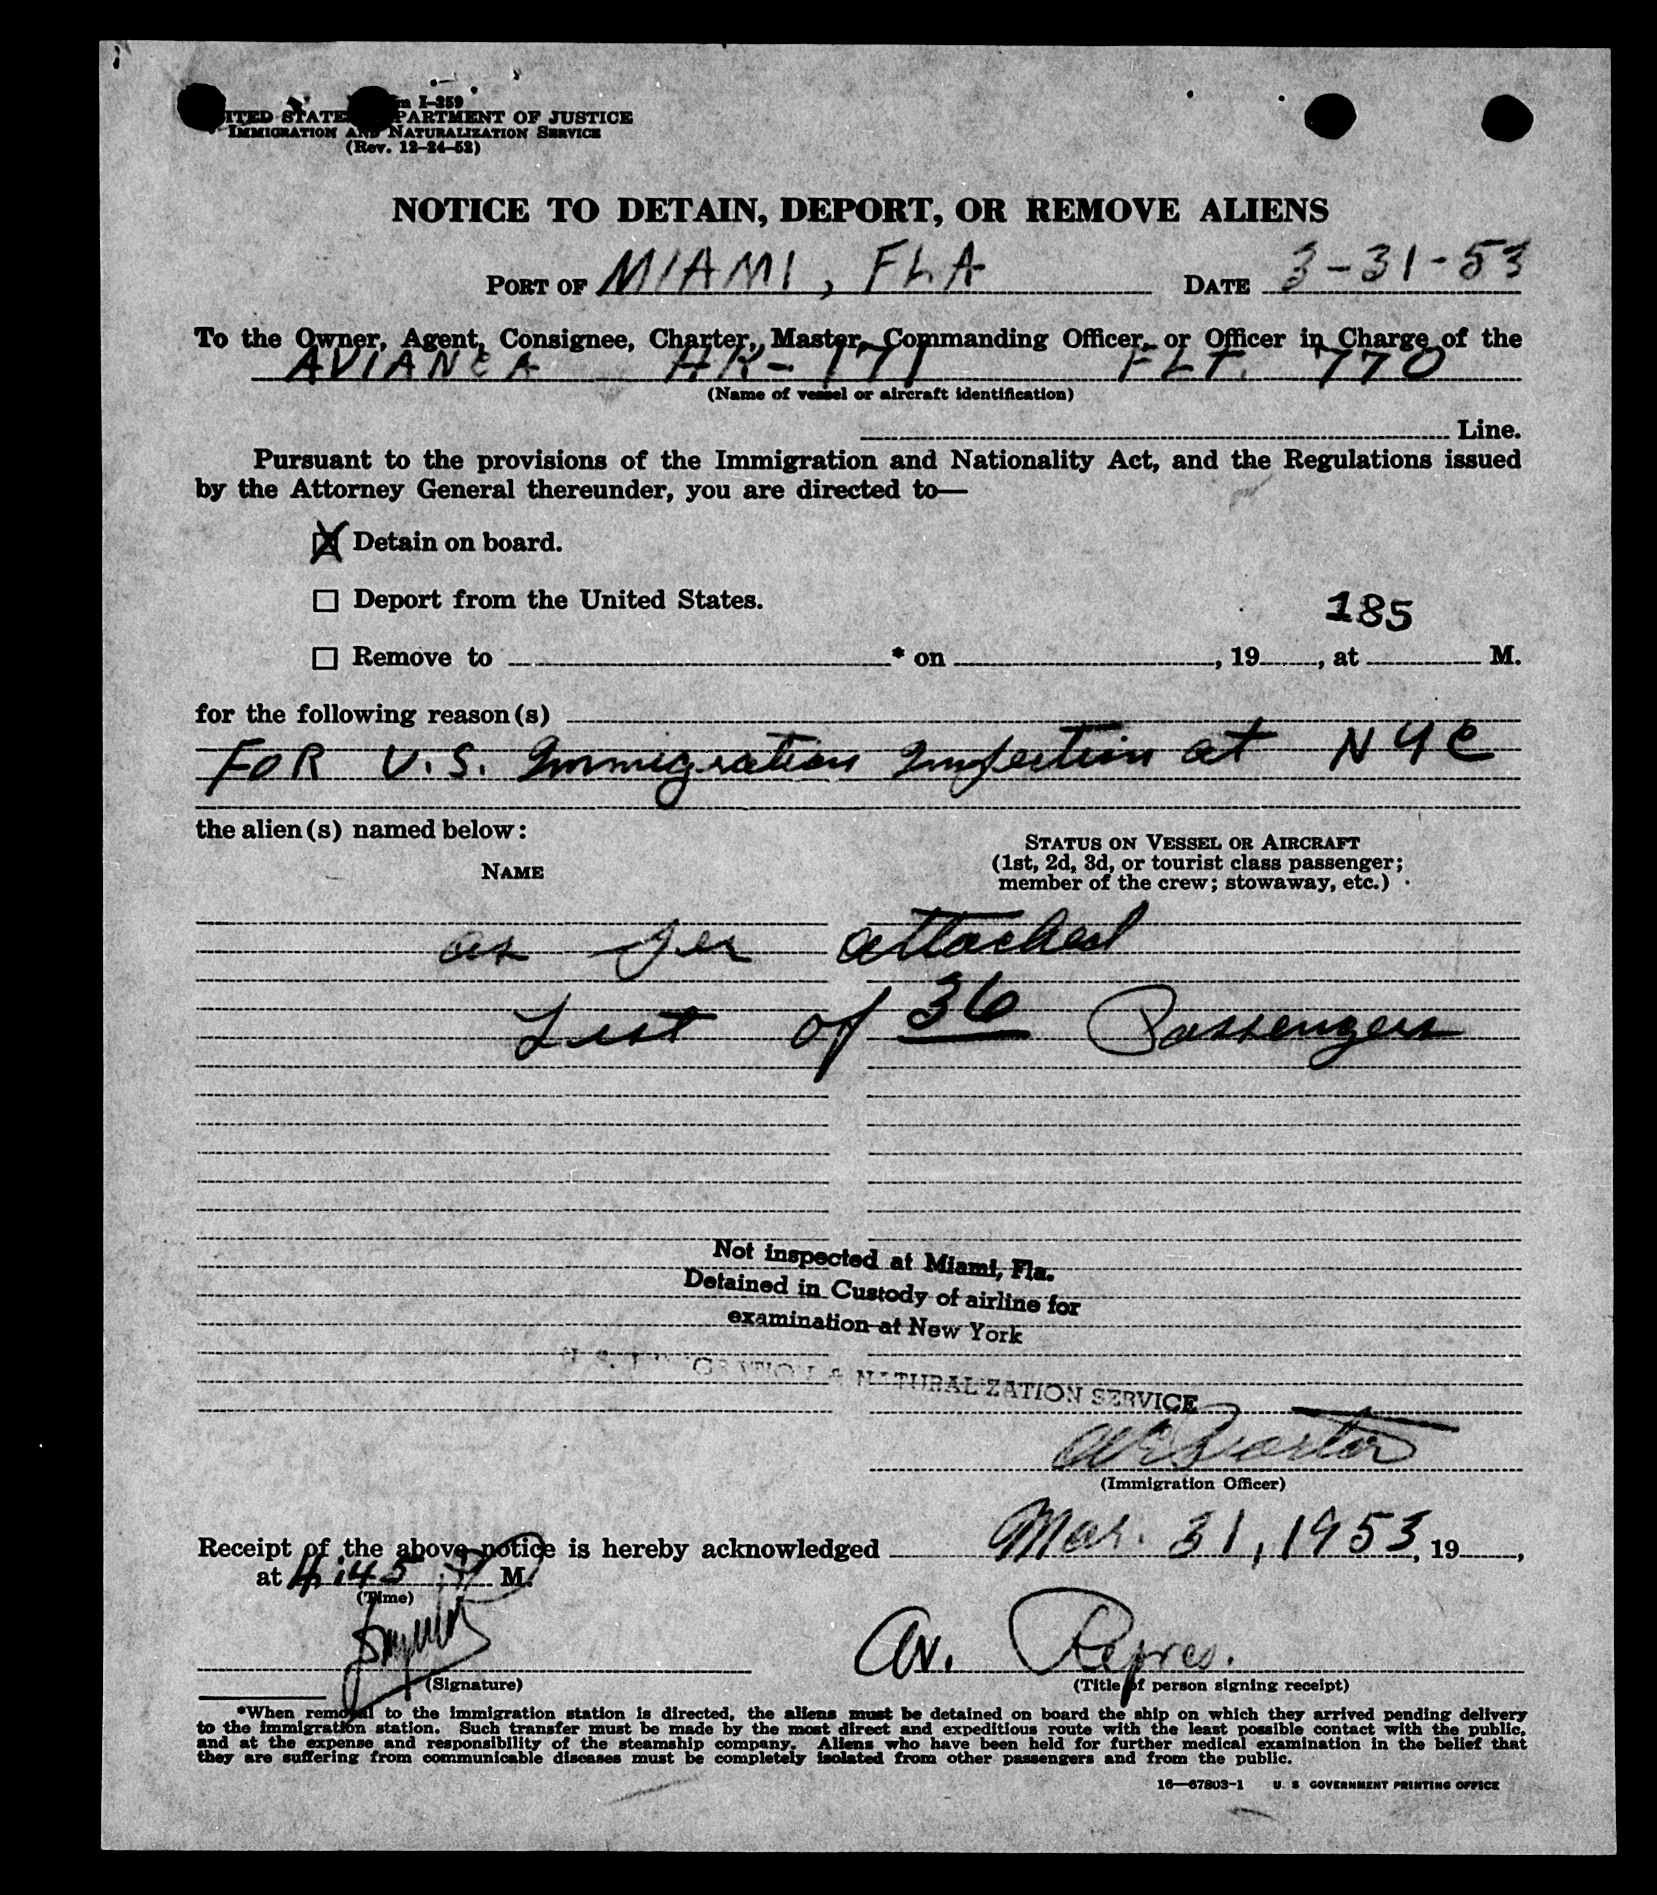 m I-259
ITED STATE PARTMENT OF JUSTICE
IMMIGRATION AND NATURALIZATION SERVICE
(Rev. 12-24-52)
NOTICE TO DETAIN, DEPORT, OR REMOVE ALIENS
PORT OF MIAMI, FLA DATE 3-31-53
To the Owner, Agent, Consignee, Charter, Master, Commanding Officer, or Officer in Charge of the
AVIANCA HK-171 FLT. 770
(Name of vessel or aircraft identification)
Line.
Pursuant to the provisions of the Immigration and Nationality Act, and the Regulations issued
by the Attorney General thereunder, you are directed to—
X Detain on board.
Deport from the United States.
185
Remove to * on , 19 , at M.
for the following reason(s)
FOR U.S. Immigration Inspection at NYC
the alien(s) named below:
NAME
STATUS ON VESSEL OR AIRCRAFT
(1st, 2d, 3d, or tourist class passenger;
member of the crew; stowaway, etc.)
as per attached
List of 36 Passengers
Not inspected at Miami, Fla.
Detained in Custody of airline for
examination at New York
U. S. IMMIGRATION & NATURALIZATION SERVICE
(Immigration Officer)
Receipt of the above notice is hereby acknowledged Mar. 31, 1953, 19 ,
at 4:45 P M.
(Time)
Av. Repres.
(Signature) (Title of person signing receipt)
*When removal to the immigration station is directed, the aliens must be detained on board the ship on which they arrived pending delivery
to the immigration station. Such transfer must be made by the most direct and expeditious route with the least possible contact with the public,
and at the expense and responsibility of the steamship company. Aliens who have been held for further medical examination in the belief that
they are suffering from communicable diseases must be completely isolated from other passengers and from the public.
16—67803-1 U. S GOVERNMENT PRINTING OFFICE